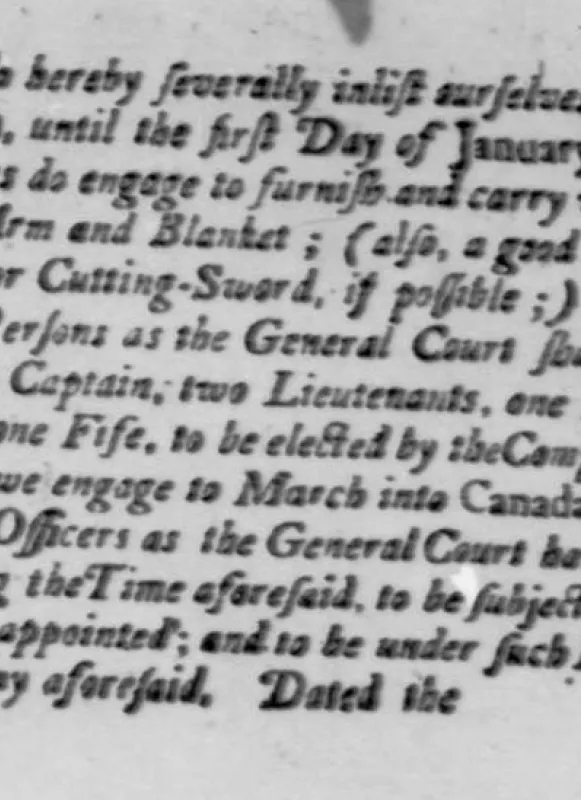 hereby ſeverally inliſt ourſelves
until the firſt Day of January
do engage to furniſh and carry
Arm and Blanket ; (alſo, a good
or Cutting-Sword, if poſſible ;)
Perſons as the General Court
Captain, two Lieutenants, one
one Fife, to be elected by the
we engage to March into Canada
Officers as the General Court
the Time aforeſaid, to be ſubject
appointed ; and to be under ſuch
aforeſaid. Dated the